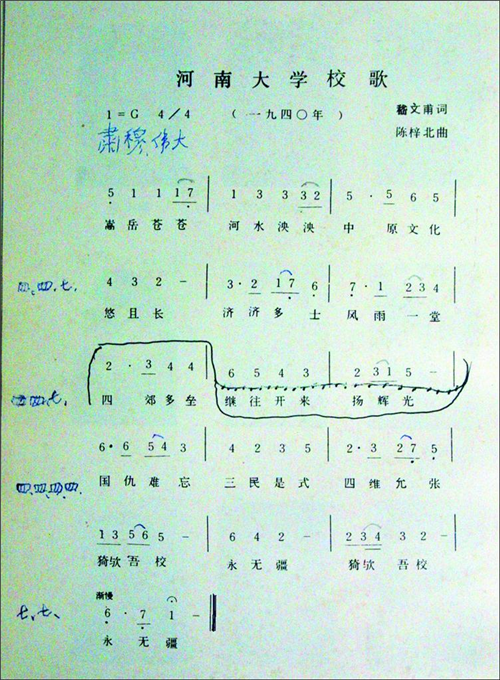 河南大学校歌
1=G 4/4 (一九四〇年) 嵇文甫词
肃穆、伟大 陈梓北曲
5 1 1 1 7 | 1 3 3 3 2 | 5 · 5 6 5
嵩岳苍苍 河水泱泱 中原文化
4 3 2 - | 3 · 2 1 7 6 | 7 · 1 2 3 4
四、四、七、 悠且长 济济多士 风雨一堂
2 · 3 4 4 | 6 5 4 3 | 2 3 1 5 -
四郊多垒 继往开来 扬辉光
6 · 6 5 4 3 | 4 2 3 5 | 2 · 3 2 7 5
国仇难忘 三民是式 四维允张
四、四、四、四、
1 3 5 6 5 - | 6 4 2 - | 2 3 4 3 2 -
猗欤吾校 永无疆 猗欤吾校
渐慢
七、七、 6 · 7 1 -
永无疆